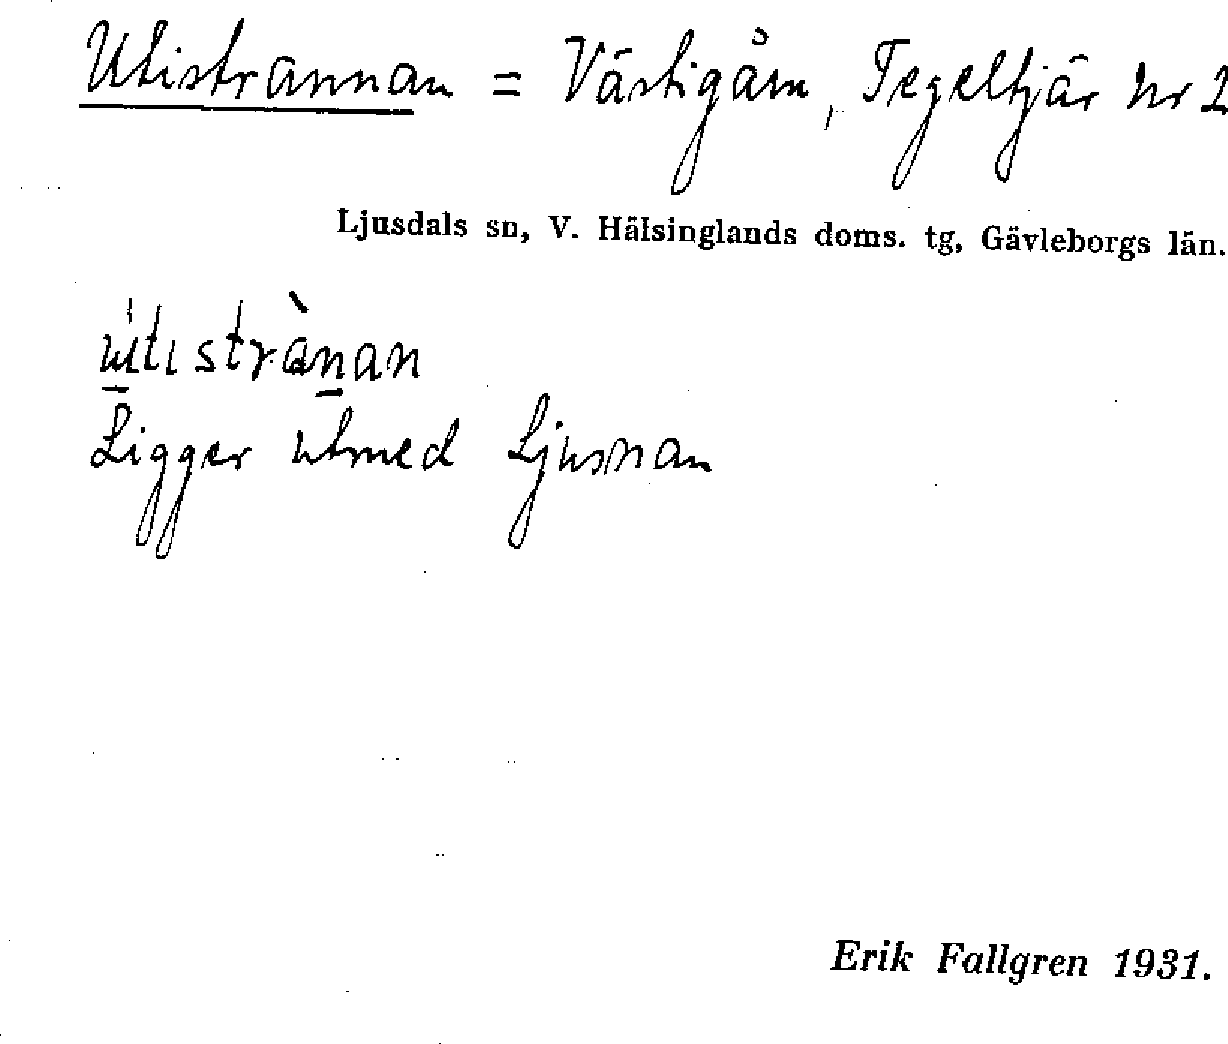 Utistrannan = Västigåm, Tegeltjär Nr 2
Ljusdals sn, V. Hälsinglands doms. tg, Gävleborgs län.
ùtıstrànan
Ligger utmed Ljusnan
Erik Fallgren 1931.